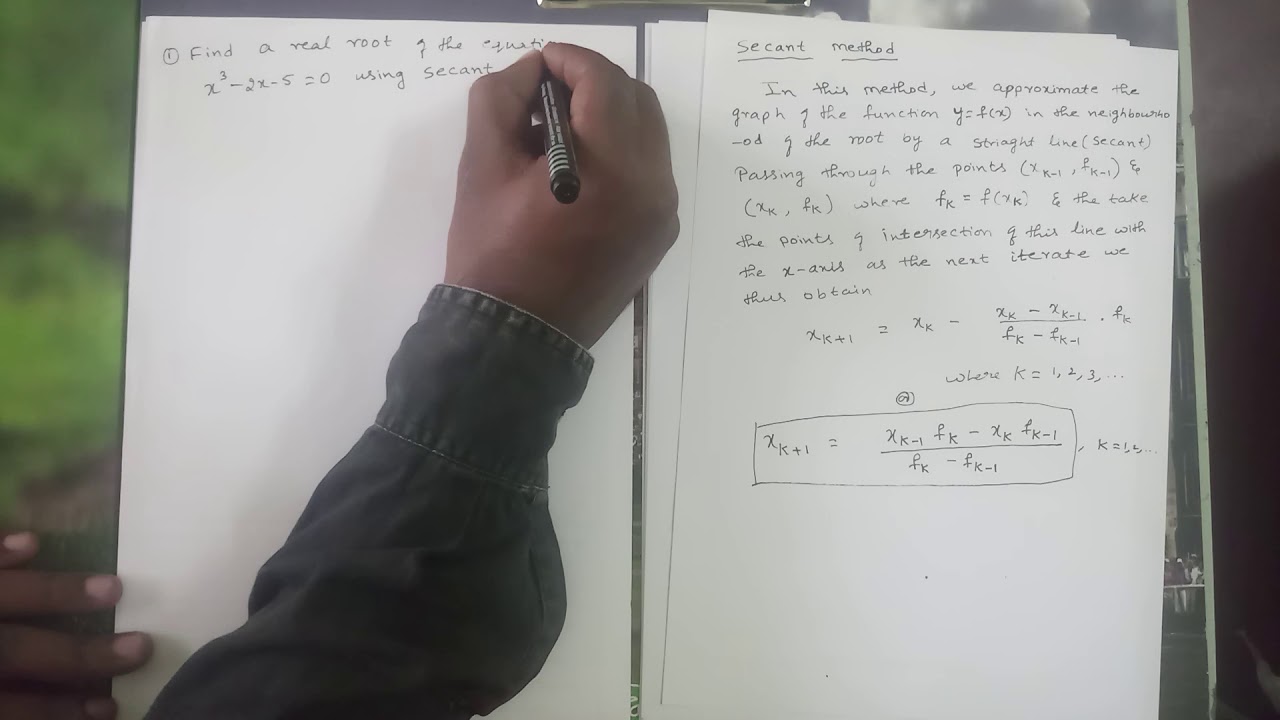 ① Find a real root of the equati
x³-2x-5=0 using secant
Secant method
In this method, we approximate the
graph of the function y=f(x) in the neighbourho
-od of the root by a striaght line (secant)
Passing through the points (xₖ₋₁, fₖ₋₁) &
(xₖ, fₖ) where fₖ = f(xₖ) & the take
the points of intersection of this line with
the x-axis as the next iterate we
thus obtain
xₖ₊₁ = xₖ - (xₖ - xₖ₋₁)/(fₖ - fₖ₋₁) . fₖ
where k = 1, 2, 3, ...
xₖ₊₁ = (xₖ₋₁ fₖ - xₖ fₖ₋₁)/(fₖ - fₖ₋₁), k=1,2,...